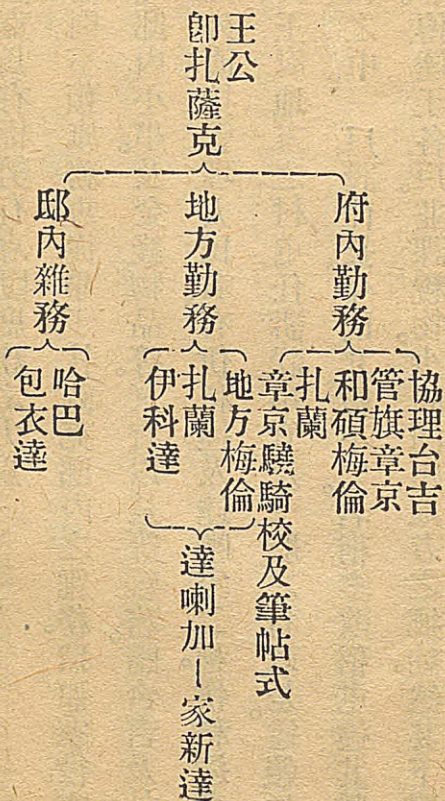 王公
卽扎薩克
府內勤務
協理台吉
管旗章京
和碩梅倫
扎蘭
章京驍騎校及筆帖式
地方勤務
地方梅倫
扎蘭
伊科達
達喇加—家新達
邸內雜務
哈巴
包衣達